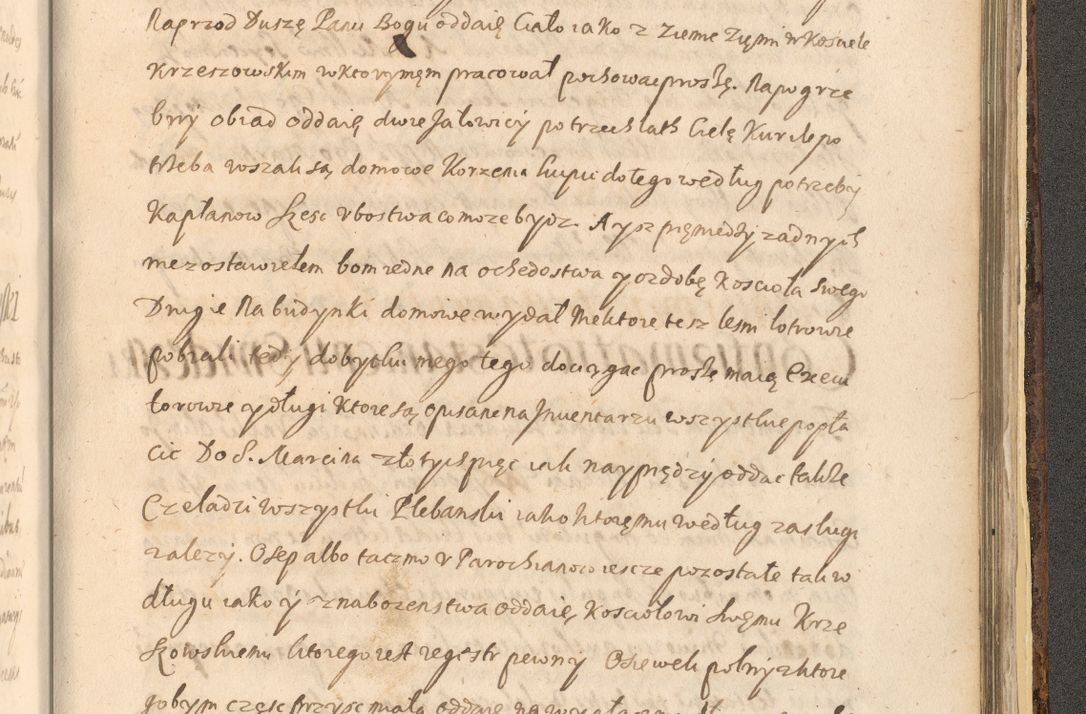 Naprzod Duszę Panu Bogu oddaię Ciało iako z Zieme Zięmi w Kosciele
Krzeszowskim w ktorymęm pracował pochowac proszę. Na pogrze
bny obiad oddaię dwie Jałowicy po trzech lath Cielę Kur ile po
trzeba wszak są domowe Korzenia kupic do tego według potrzeby
Kapłanow Szesc Vbostwa co moze bydz. A ysz pięniedzy zadnych
nie zostawiełem bom iedne na ochedostwa y ozdobę Koscioła swego
Drugie Na budynki domowe wydał Niektore tesz lesni lotrowie
pobrali tedy dobytku mego tego dociągac proszę maią Execu
torowie y długi ktore są opisane na Inuentarzu wszystkie popła
cic Do S. Marcina złotych pięc iak nayprędzy oddac takze
Czeladzi wszystki Plebanski iako ktoręmu według zaslugi
zalezy. Osep albo taczmo v Parochianow iescze pozostałe tak w
długu iako y z nabozenstwa oddaię Kosciołowi swęmu Krze
szowskiemu ktorego iest regestr pewny Osiewek polny z ktore
gobym częsc przysc miała oddaię na